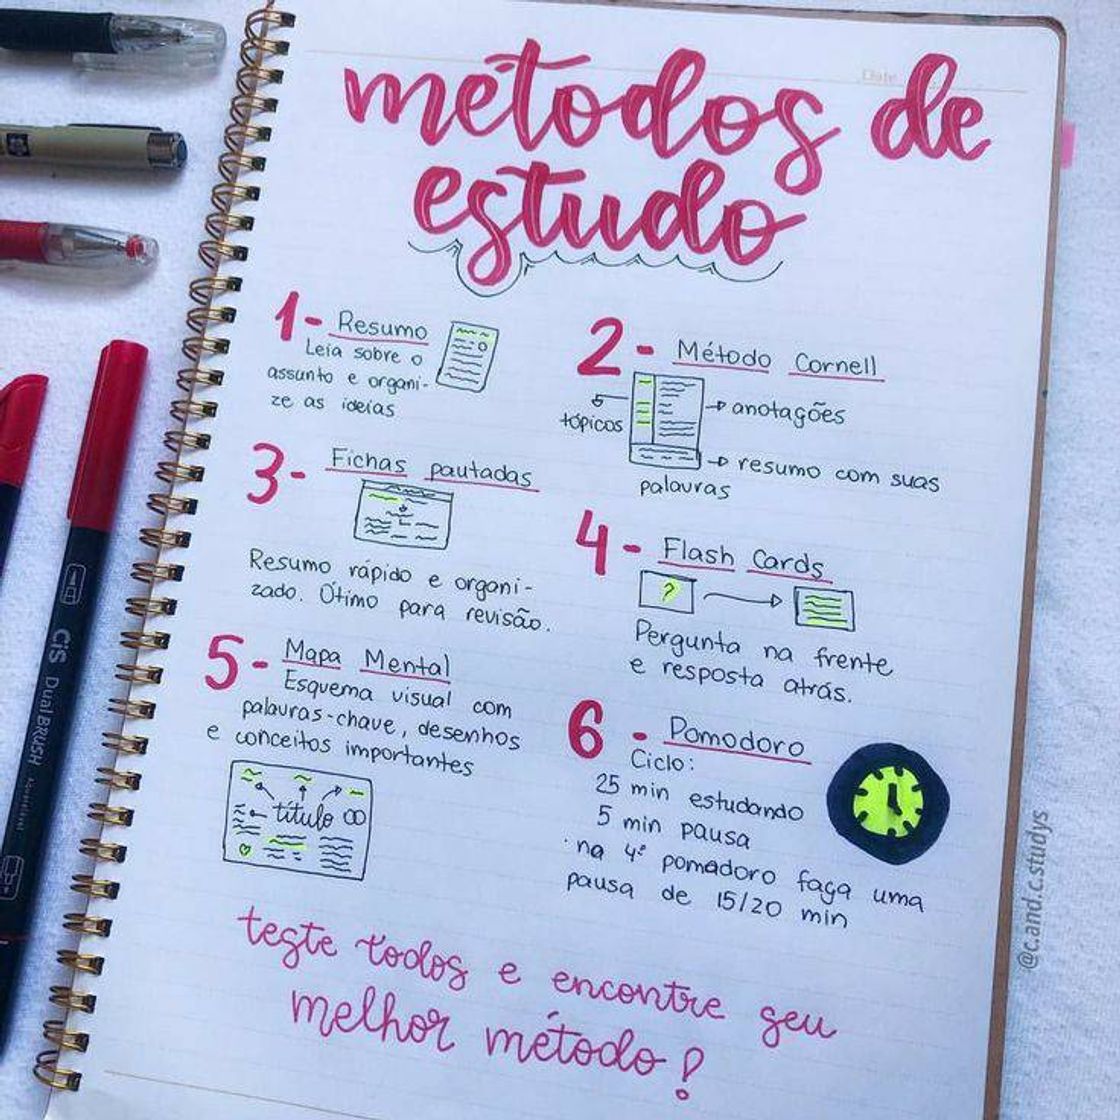 métodos de
estudo
1- Resumo
Leia sobre o
assunto e organi-
ze as ideias
2- Método Cornell
tópicos
anotações
resumo com suas
palavras
3- Fichas pautadas
Resumo rápido e organi-
zado. Ótimo para revisão.
4- Flash Cards
?
Pergunta na frente
e resposta atrás.
5- Mapa Mental
Esquema visual com
palavras-chave, desenhos
e conceitos importantes
título
6- Pomodoro
Ciclo:
25 min estudando
5 min pausa
· na 4º pomadoro faça uma
pausa de 15/20 min
teste todos e encontre seu
melhor método!
Date
CiS Dual BRUSH
@c.and.c.studys